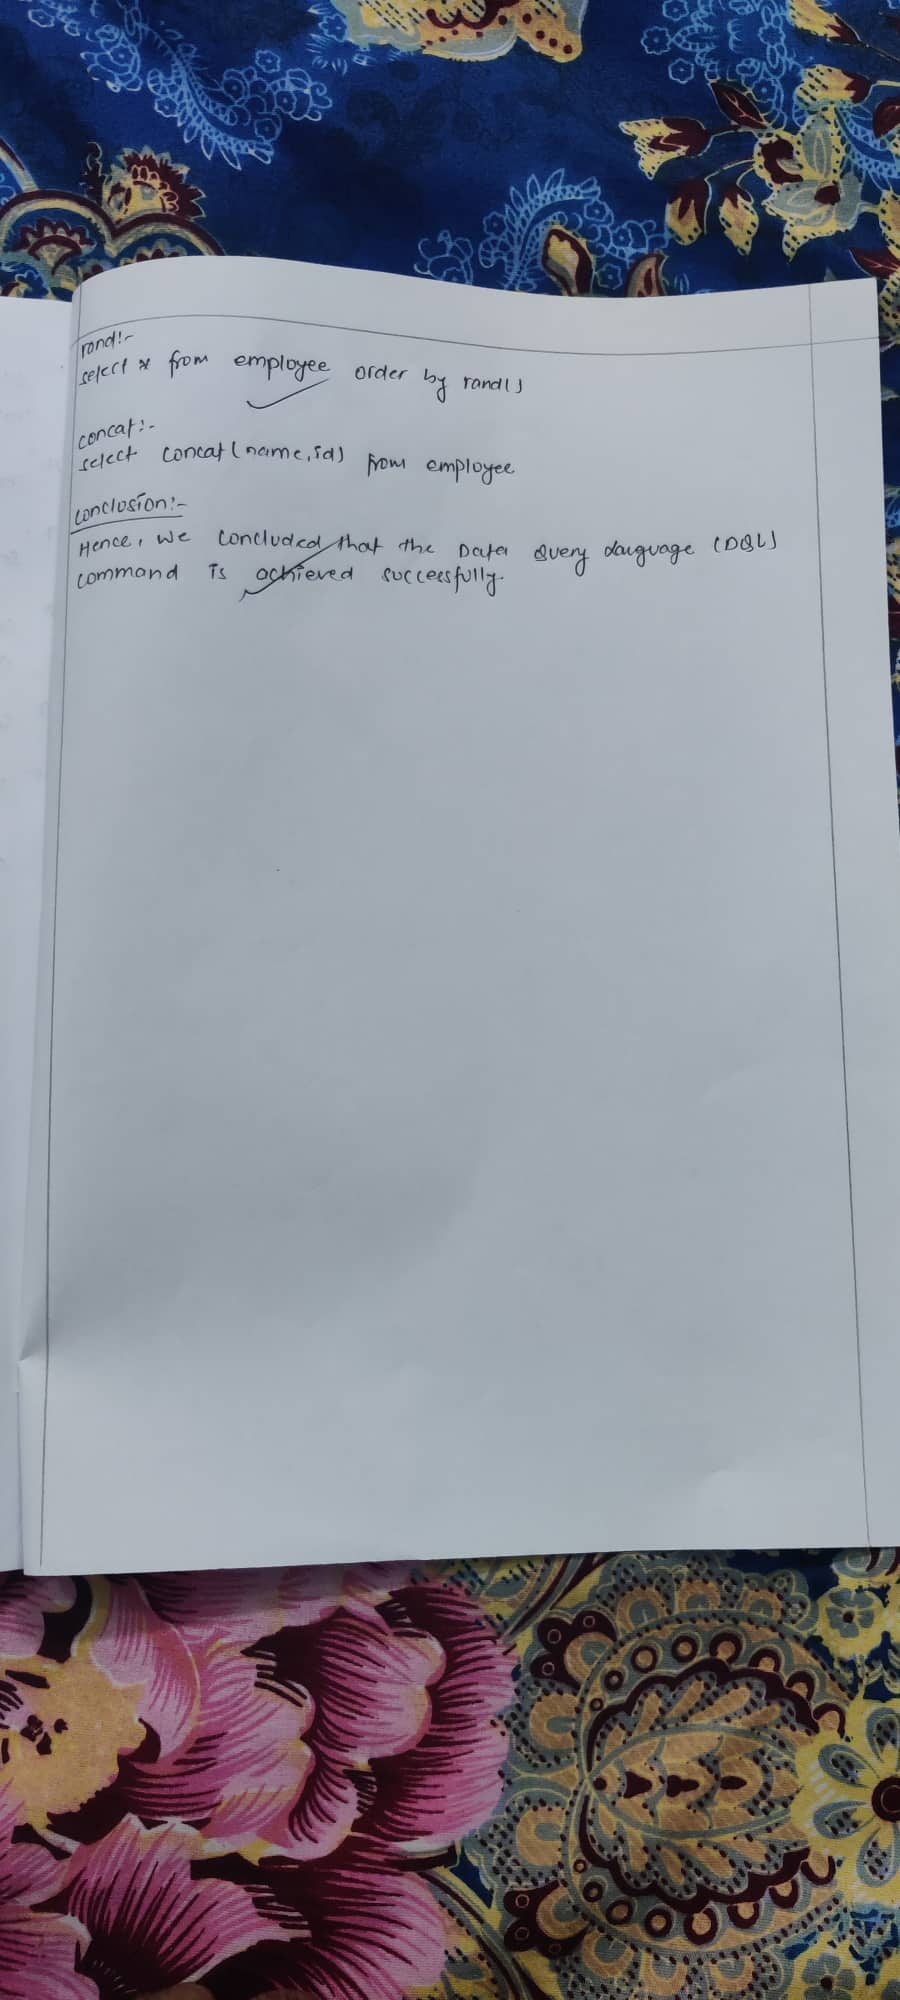 rand:-
select * from employee order by rand()
concat:-
select concat(name,id) from employee
conclusion:-
Hence, we concluded that the Data Query Language (DQL)
command is achieved successfully.